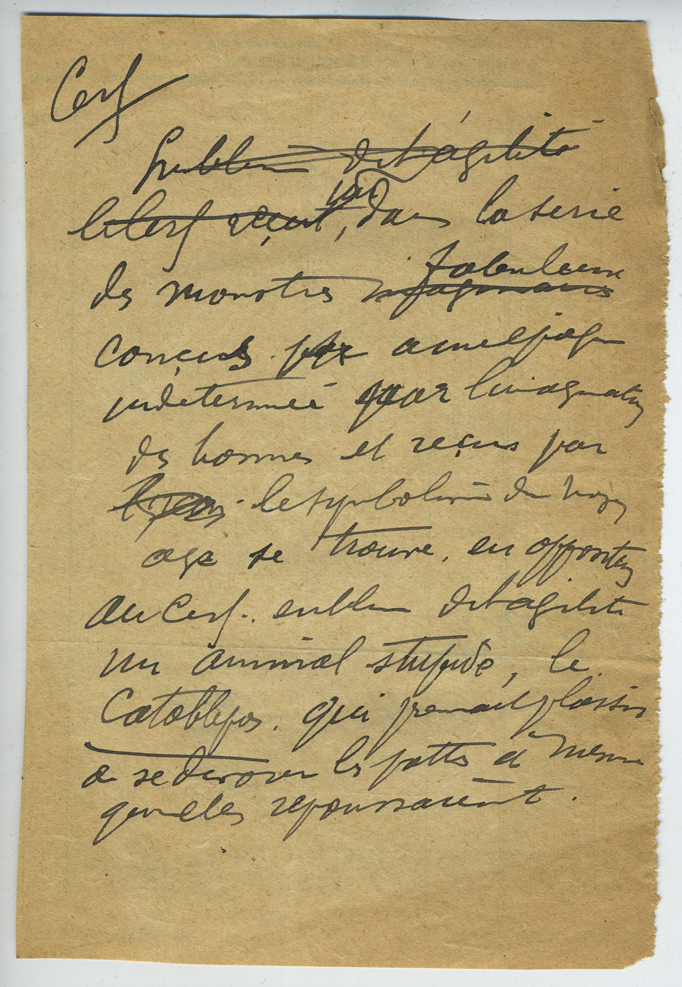 Cerf
Emblème de l'agilité
le Cerf reçut, dans la série
fabuleux
des monstres imaginaires
conçus par à une époque
indéterminée par l'imagination
des hommes et reçus par
le symbolisme du moyen
age se trouve, en opposition
au Cerf. emblème de l'agilité
un animal stupide, le
Catoblepas. qui prenait plaisir
à se dévorer les pattes à mesure
qu'elles repoussaient.